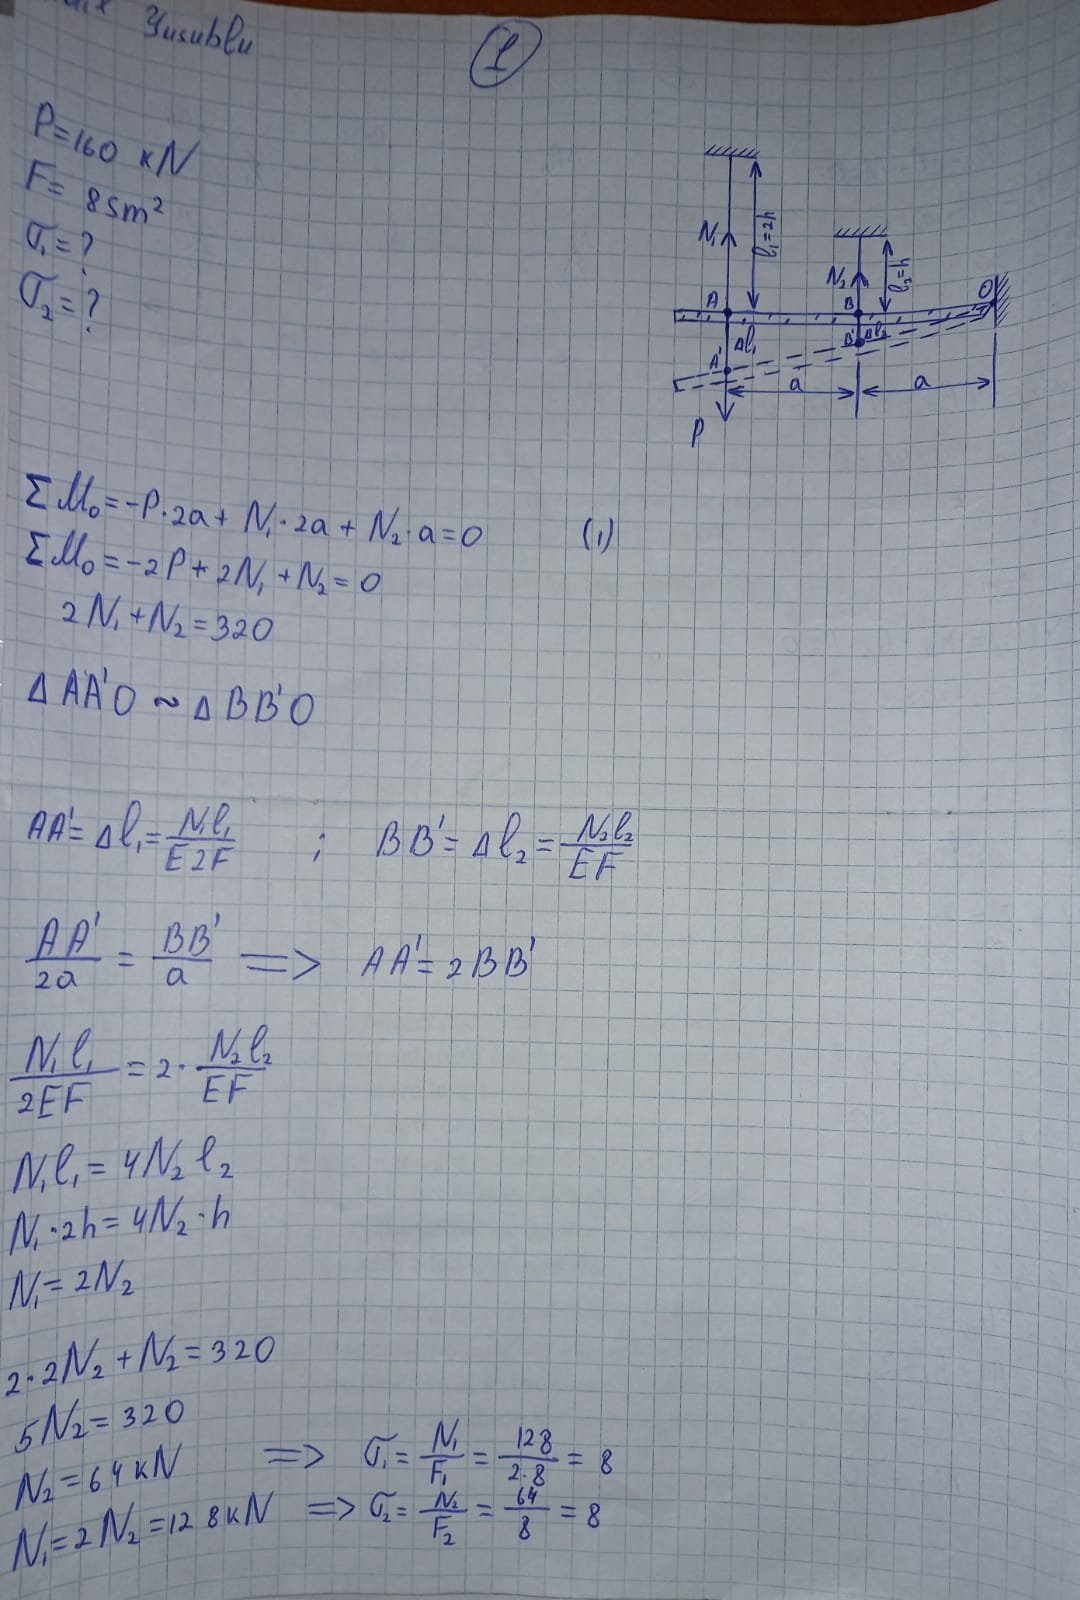 Yusublu
1
P=160 kN
F= 8sm²
σ₁=?
σ₂=?
N₁
l₁=2h
N₂
l₂=h
A
B
O
A'
Δl₁
B'
Δl₂
a
a
P
ΣM₀=-P·2a+N₁·2a+N₂·a=0 (1)
ΣM₀=-2P+2N₁+N₂=0
2N₁+N₂=320
ΔAA'O ~ ΔBB'O
AA'=Δl₁=N₁l₁/E2F ; BB'=Δl₂=N₂l₂/EF
AA'/2a = BB'/a => AA'=2BB'
N₁l₁/2EF=2·N₂l₂/EF
N₁l₁=4N₂l₂
N₁·2h=4N₂·h
N₁=2N₂
2·2N₂+N₂=320
5N₂=320
N₂=64kN => σ₁=N₁/F₁=128/2·8=8
N₁=2N₂=128kN => σ₂=N₂/F₂=64/8=8